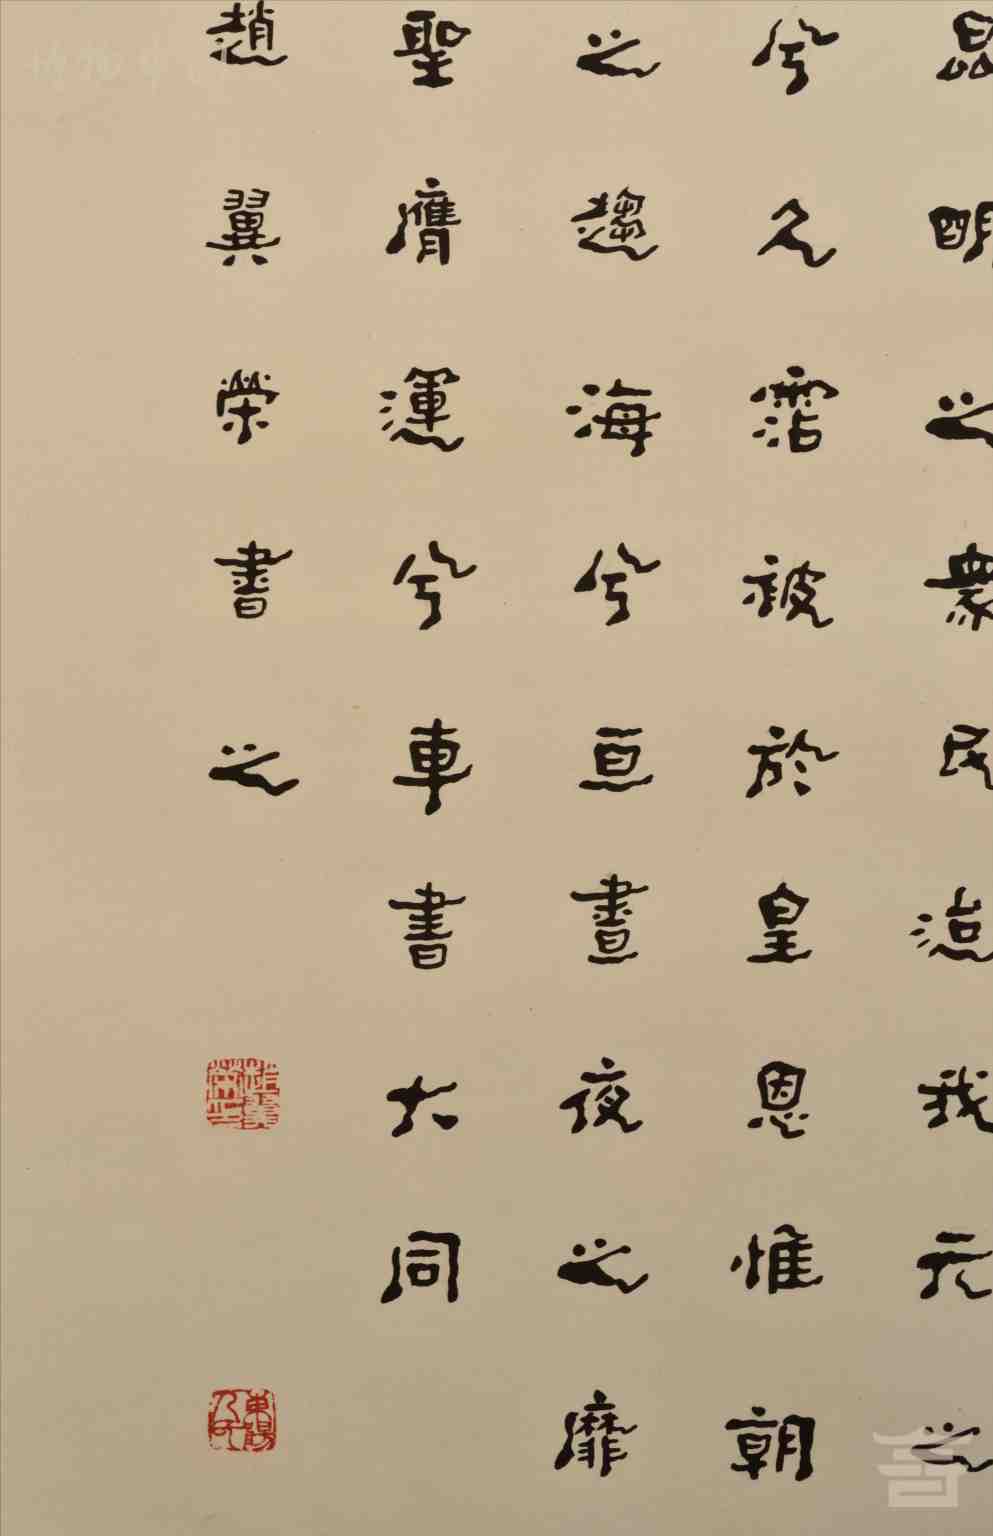 昷明之眾民治我元之
兮久霑被於皇恩惟朝
之趨海兮亘晝夜之靡
聖膺運兮車書大同
趙翼榮書之